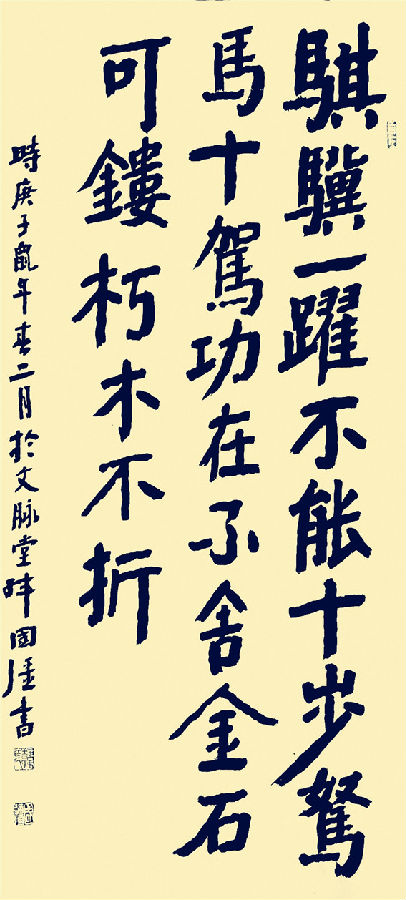 騏驥一躍不能十步駑
馬十駕功在不舍金石
可鏤朽木不折
時庚子鼠年春二月於文脈堂國書